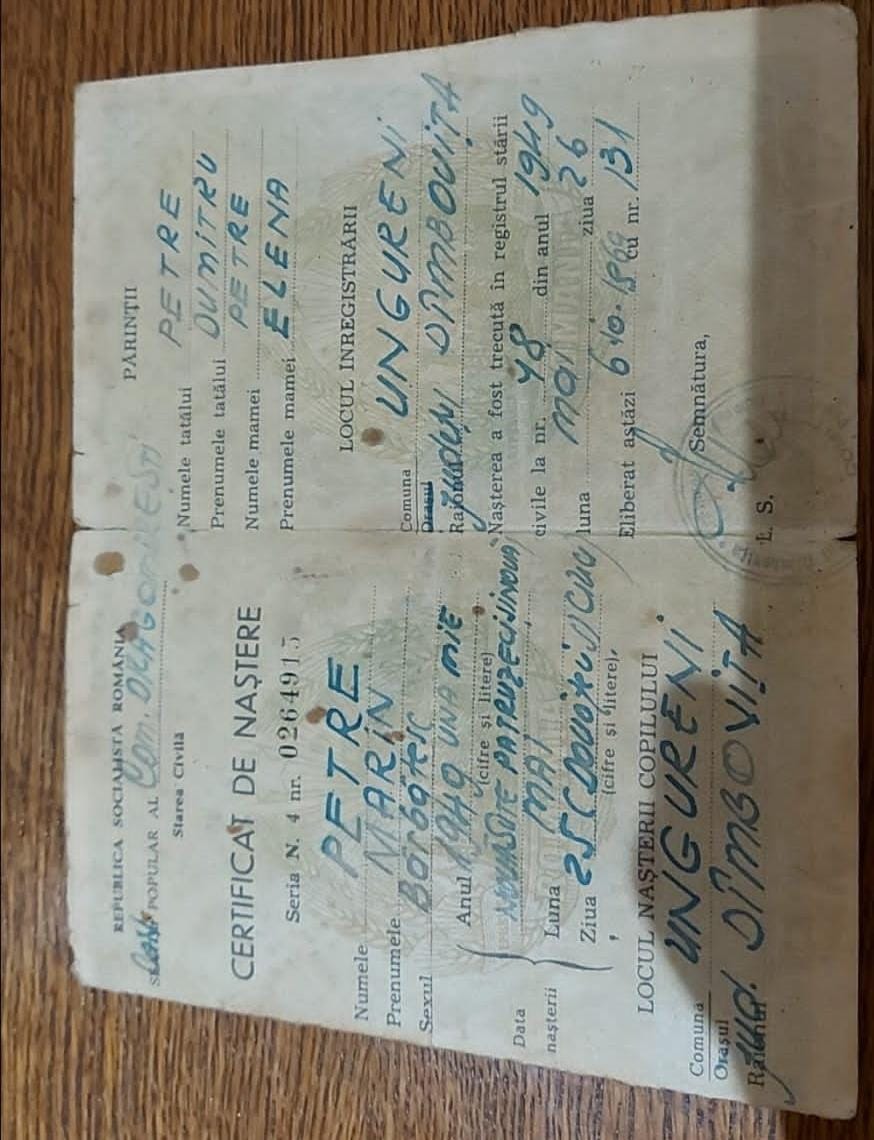 REPUBLICA SOCIALISTĂ ROMÂNIA
POPULAR AL Com. DRAGOMIREȘTI
Starea Civilă
CERTIFICAT DE NAȘTERE
Seria N. 4 nr. 0264915
Numele PETRE
Prenumele MARIN
Sexul Bărbătesc
Data nașterii
Anul 1949 UNA MIE
(cifre și litere)
NOUASUTE PATRUZECIȘINOUĂ
Luna MAI
Ziua 25 (Douăzeci și cinci)
(cifre și litere),
LOCUL NAȘTERII COPILULUI
Comuna UNGURENI
Orașul
Raionul Jud. DÎMBOVIȚA
PĂRINȚII
Numele tatălui PETRE
Prenumele tatălui DUMITRU
Numele mamei PETRE
Prenumele mamei ELENA
LOCUL INREGISTRĂRII
Comuna UNGURENI
Orașul
Raionul Județul DÎMBOVIȚA
Nașterea a fost trecută în registrul stării
civile la nr. 48 din anul 1949
luna mai ziua 26
Eliberat astăzi 6.10.1969 cu nr. 131
Semnătura,
L. S.